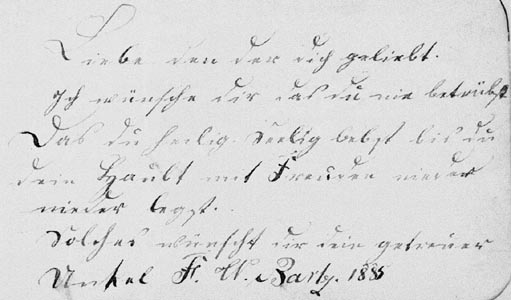 Liebe den der dich geliebt.
Ich wünsche dir das du nie betrübst
Das du heilig. Seelig lebst bis du
dein Haubt mit Freuden nieder
nieder legst.
Solches wünscht dir dein getreuer
Unkel F. W. Bartz. 1885